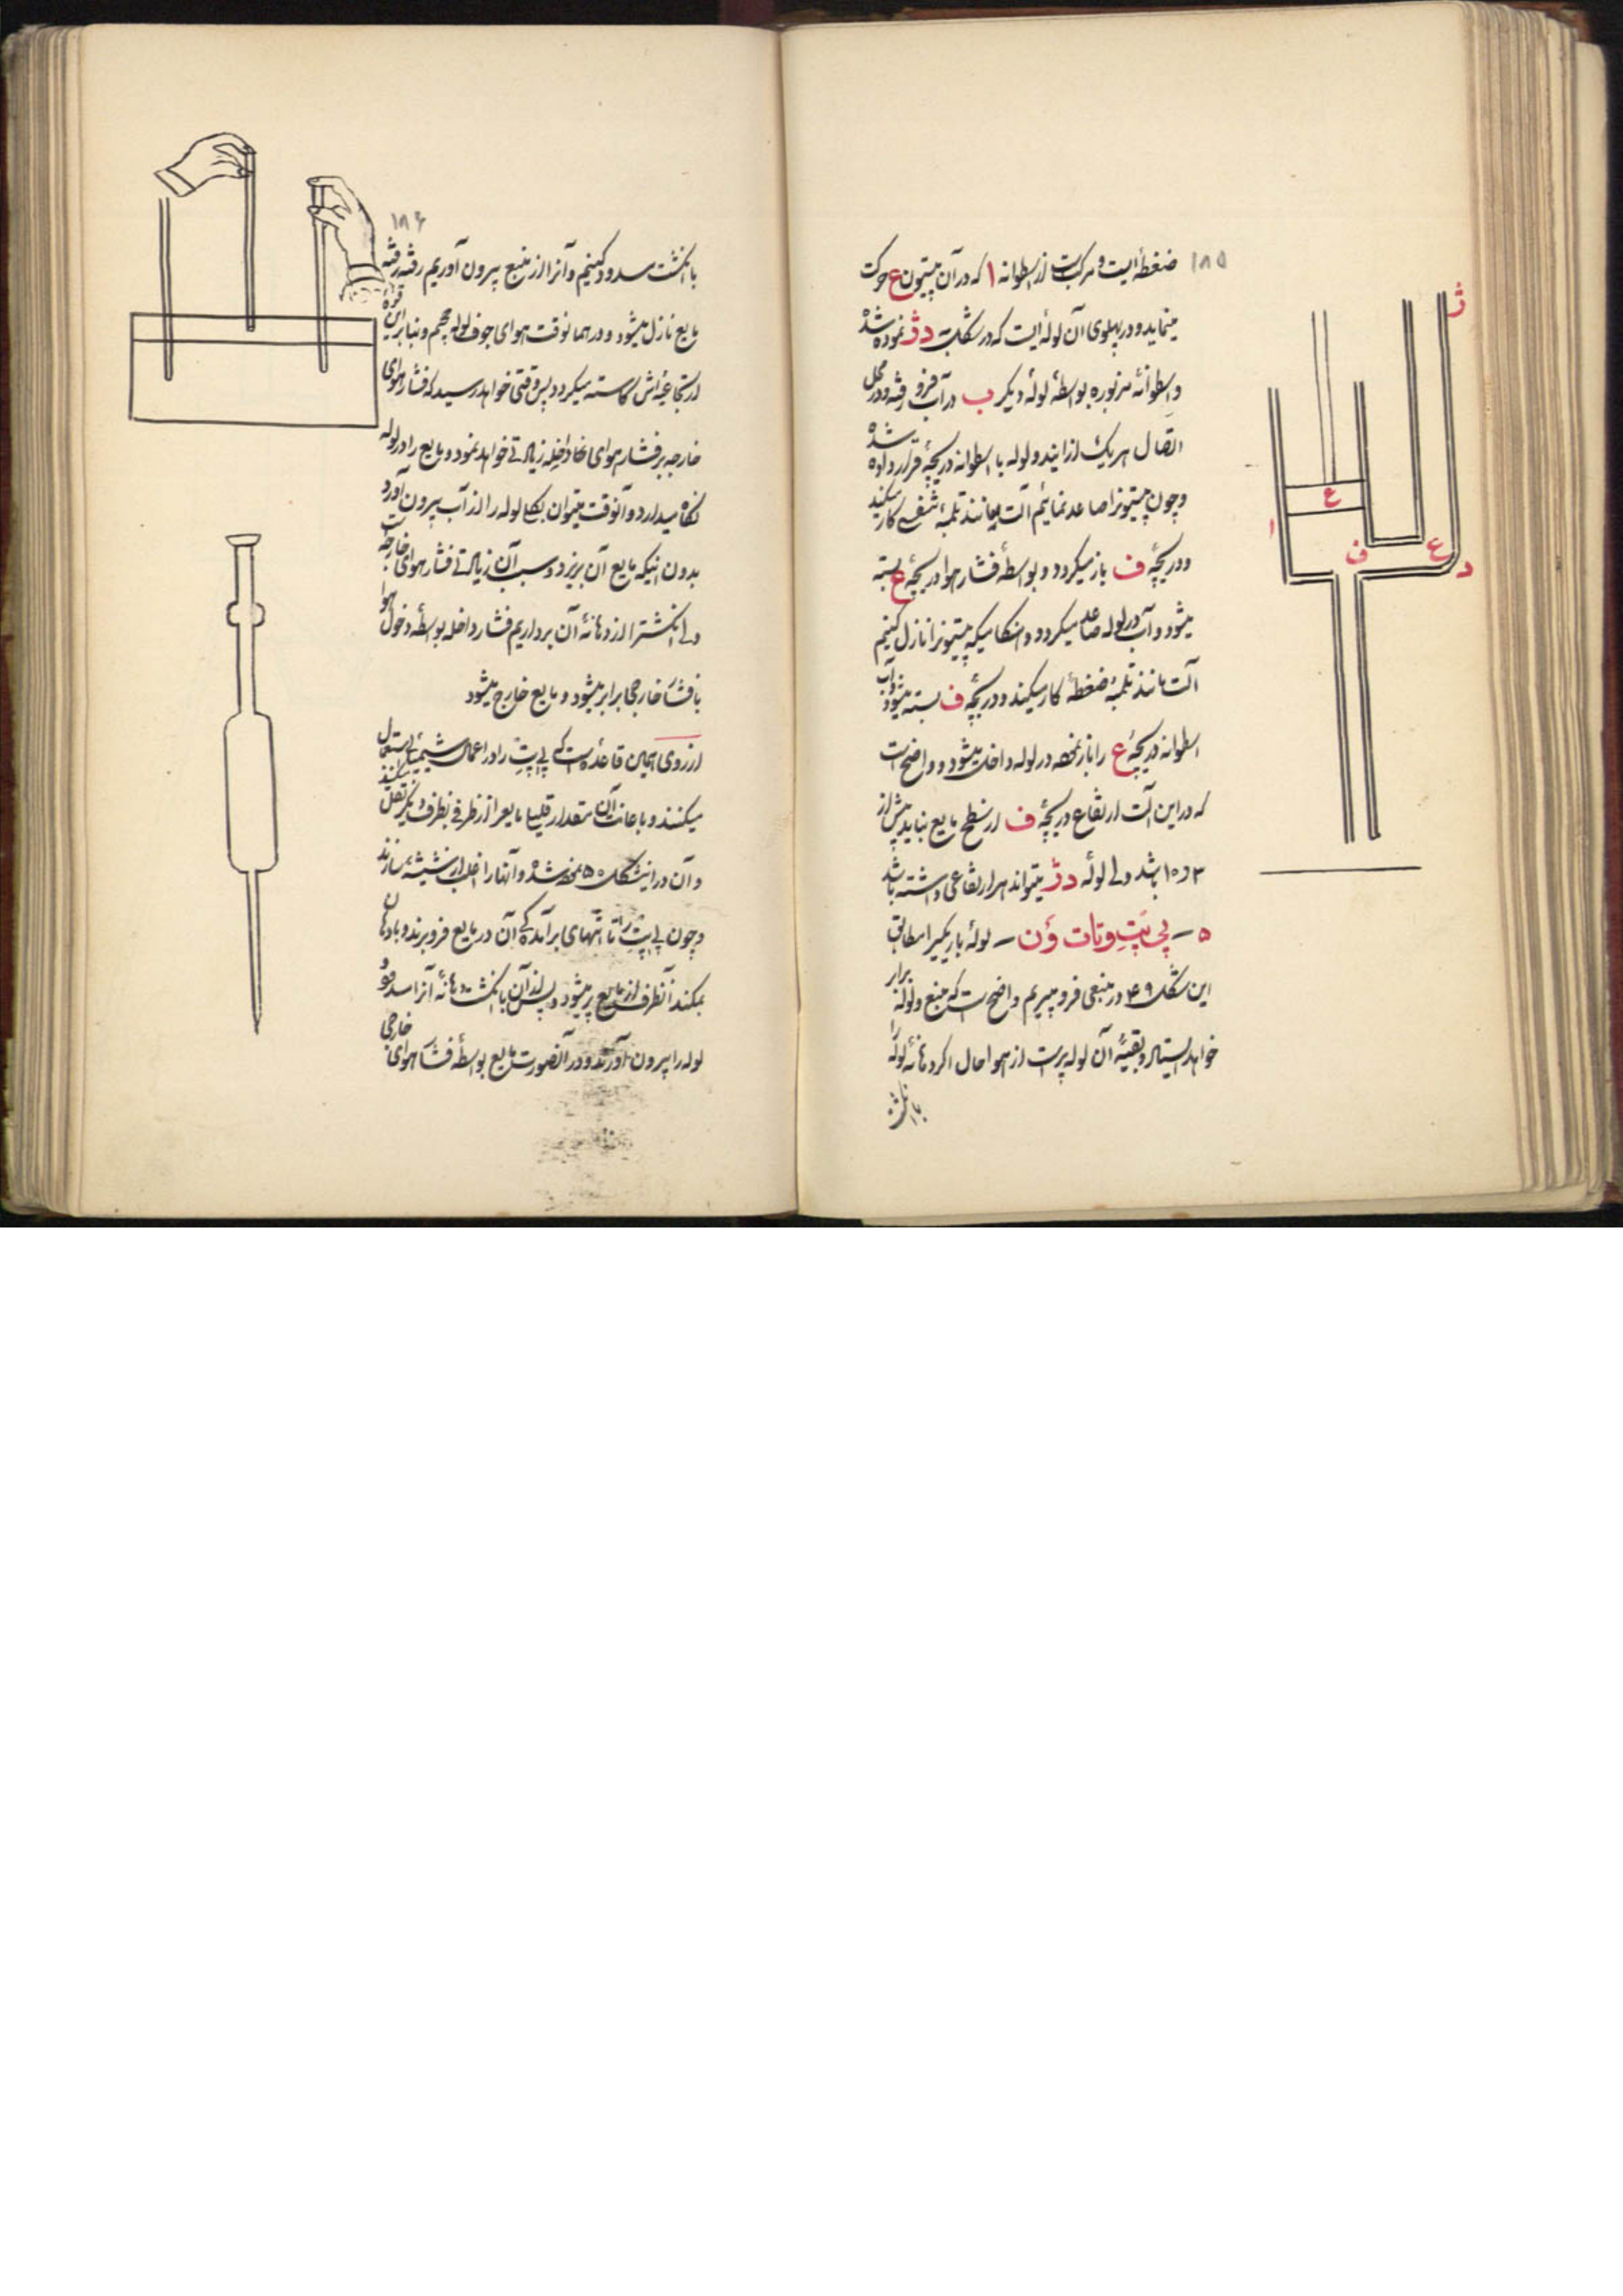 ۱۸۵
ضغطه‌ایست و مرکبست از اسطوانه ا که در آن پیستون ع حرکت
مینماید و در پهلوی آن لوله‌ایست که در شکل دژ نموده شده
و اسطوانهٔ مزبوره بواسطهٔ لولهٔ دیگر ب در آب فرو رفته و در محل
اتصال هریک از ایندو لوله با اسطوانه دریچهٔ قرار داده شده
و چون پیستونرا صاعد نمائیم آلت مانند تلمبهٔ تنفسی کار میکند
و دریچهٔ ف باز میگردد و بواسطهٔ فشار هوا دریچهٔ ع بسته
میشود و آب در لوله صاعد میگردد و هنگامیکه پیستونرا نازل کنیم
آلت مانند تلمبهٔ ضغطه کار میکند و دریچهٔ ف بسته میشود و آب
اسطوانه دریچهٔ ع را باز نموده در لوله داخل میشود و واضح است
که در این آلت ارتفاع دریچهٔ ف از سطح مایع نباید بیش از
۱۰٫۳ باشد ولی لولهٔ دژ میتواند هر ارتفاعی داشته باشد
۵ – پی پت و تات ؤن – لولهٔ باریکیرا مطابق
این شکل ۴۹ در منبعی فرو میبریم واضح است که منبع و لوله برابر
خواهد ایستاد و بقیهٔ آن لوله پر است از هوا حال اگر دهانهٔ لوله را
با انگشت
ژ
ع
ا
ف
ع
د
۱۸۶
با انگشت مسدود کنیم و آنرا از منبع بیرون آوریم رفته رفته
مایع نازل میشود و در همانوقت هوای جوف لوله حجیم و بنابراین قوهٔ
ارتجاعیه‌اش کاسته میگردد پس وقتی خواهد رسید که فشار هوای
خارجه بر فشار هوای داخله زیادتی خواهد نمود و مایع را در لوله
نگاه میدارد و آنوقت میتوان بکلی لوله را از آب بیرون آورد
بدون اینکه مایع آن بریزد و سبب آن زیادتی فشار هوای خارجه است
ولی انگشترا از دهانهٔ آن برداریم فشار داخله بواسطهٔ دخول هوا
با فشار خارجی برابر میشود و مایع خارج میشود
از روی همین قاعده است که پی‌پت را در اعمال شیمیائی استعمال
میکنند و باعانت آن مقدار قلیلی مایعرا از ظرفی بظرف دیگر نقل میکنند
و آن در اینشکل ۵۰ نموده شده و آنها را اغلب از شیشه میسازند
و چون پی‌پت را تا انتهای برآمدگی آن در مایع فرو برند و با دهان
بمکند آنظرف از مایع پر میشود و پس از آن با انگشت دهانهٔ آنرا مسدود
لوله را بیرون آورند و در آنصورت مایع بواسطهٔ فشار هوای خارجی